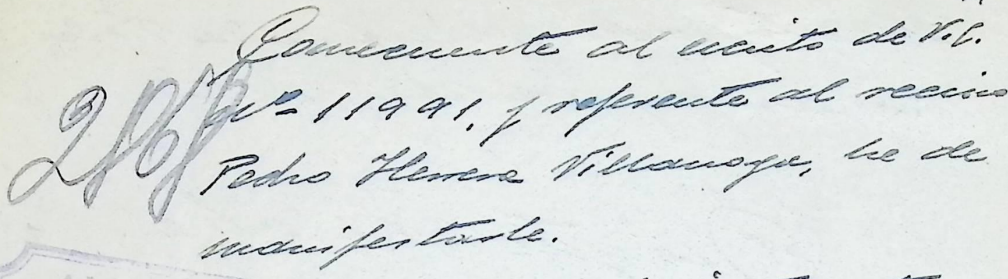 Consecuente al escrito de V.S.
Nº 11991, y referente al vecino
Pedro Herrera Villamoya, he de
manifestarle.